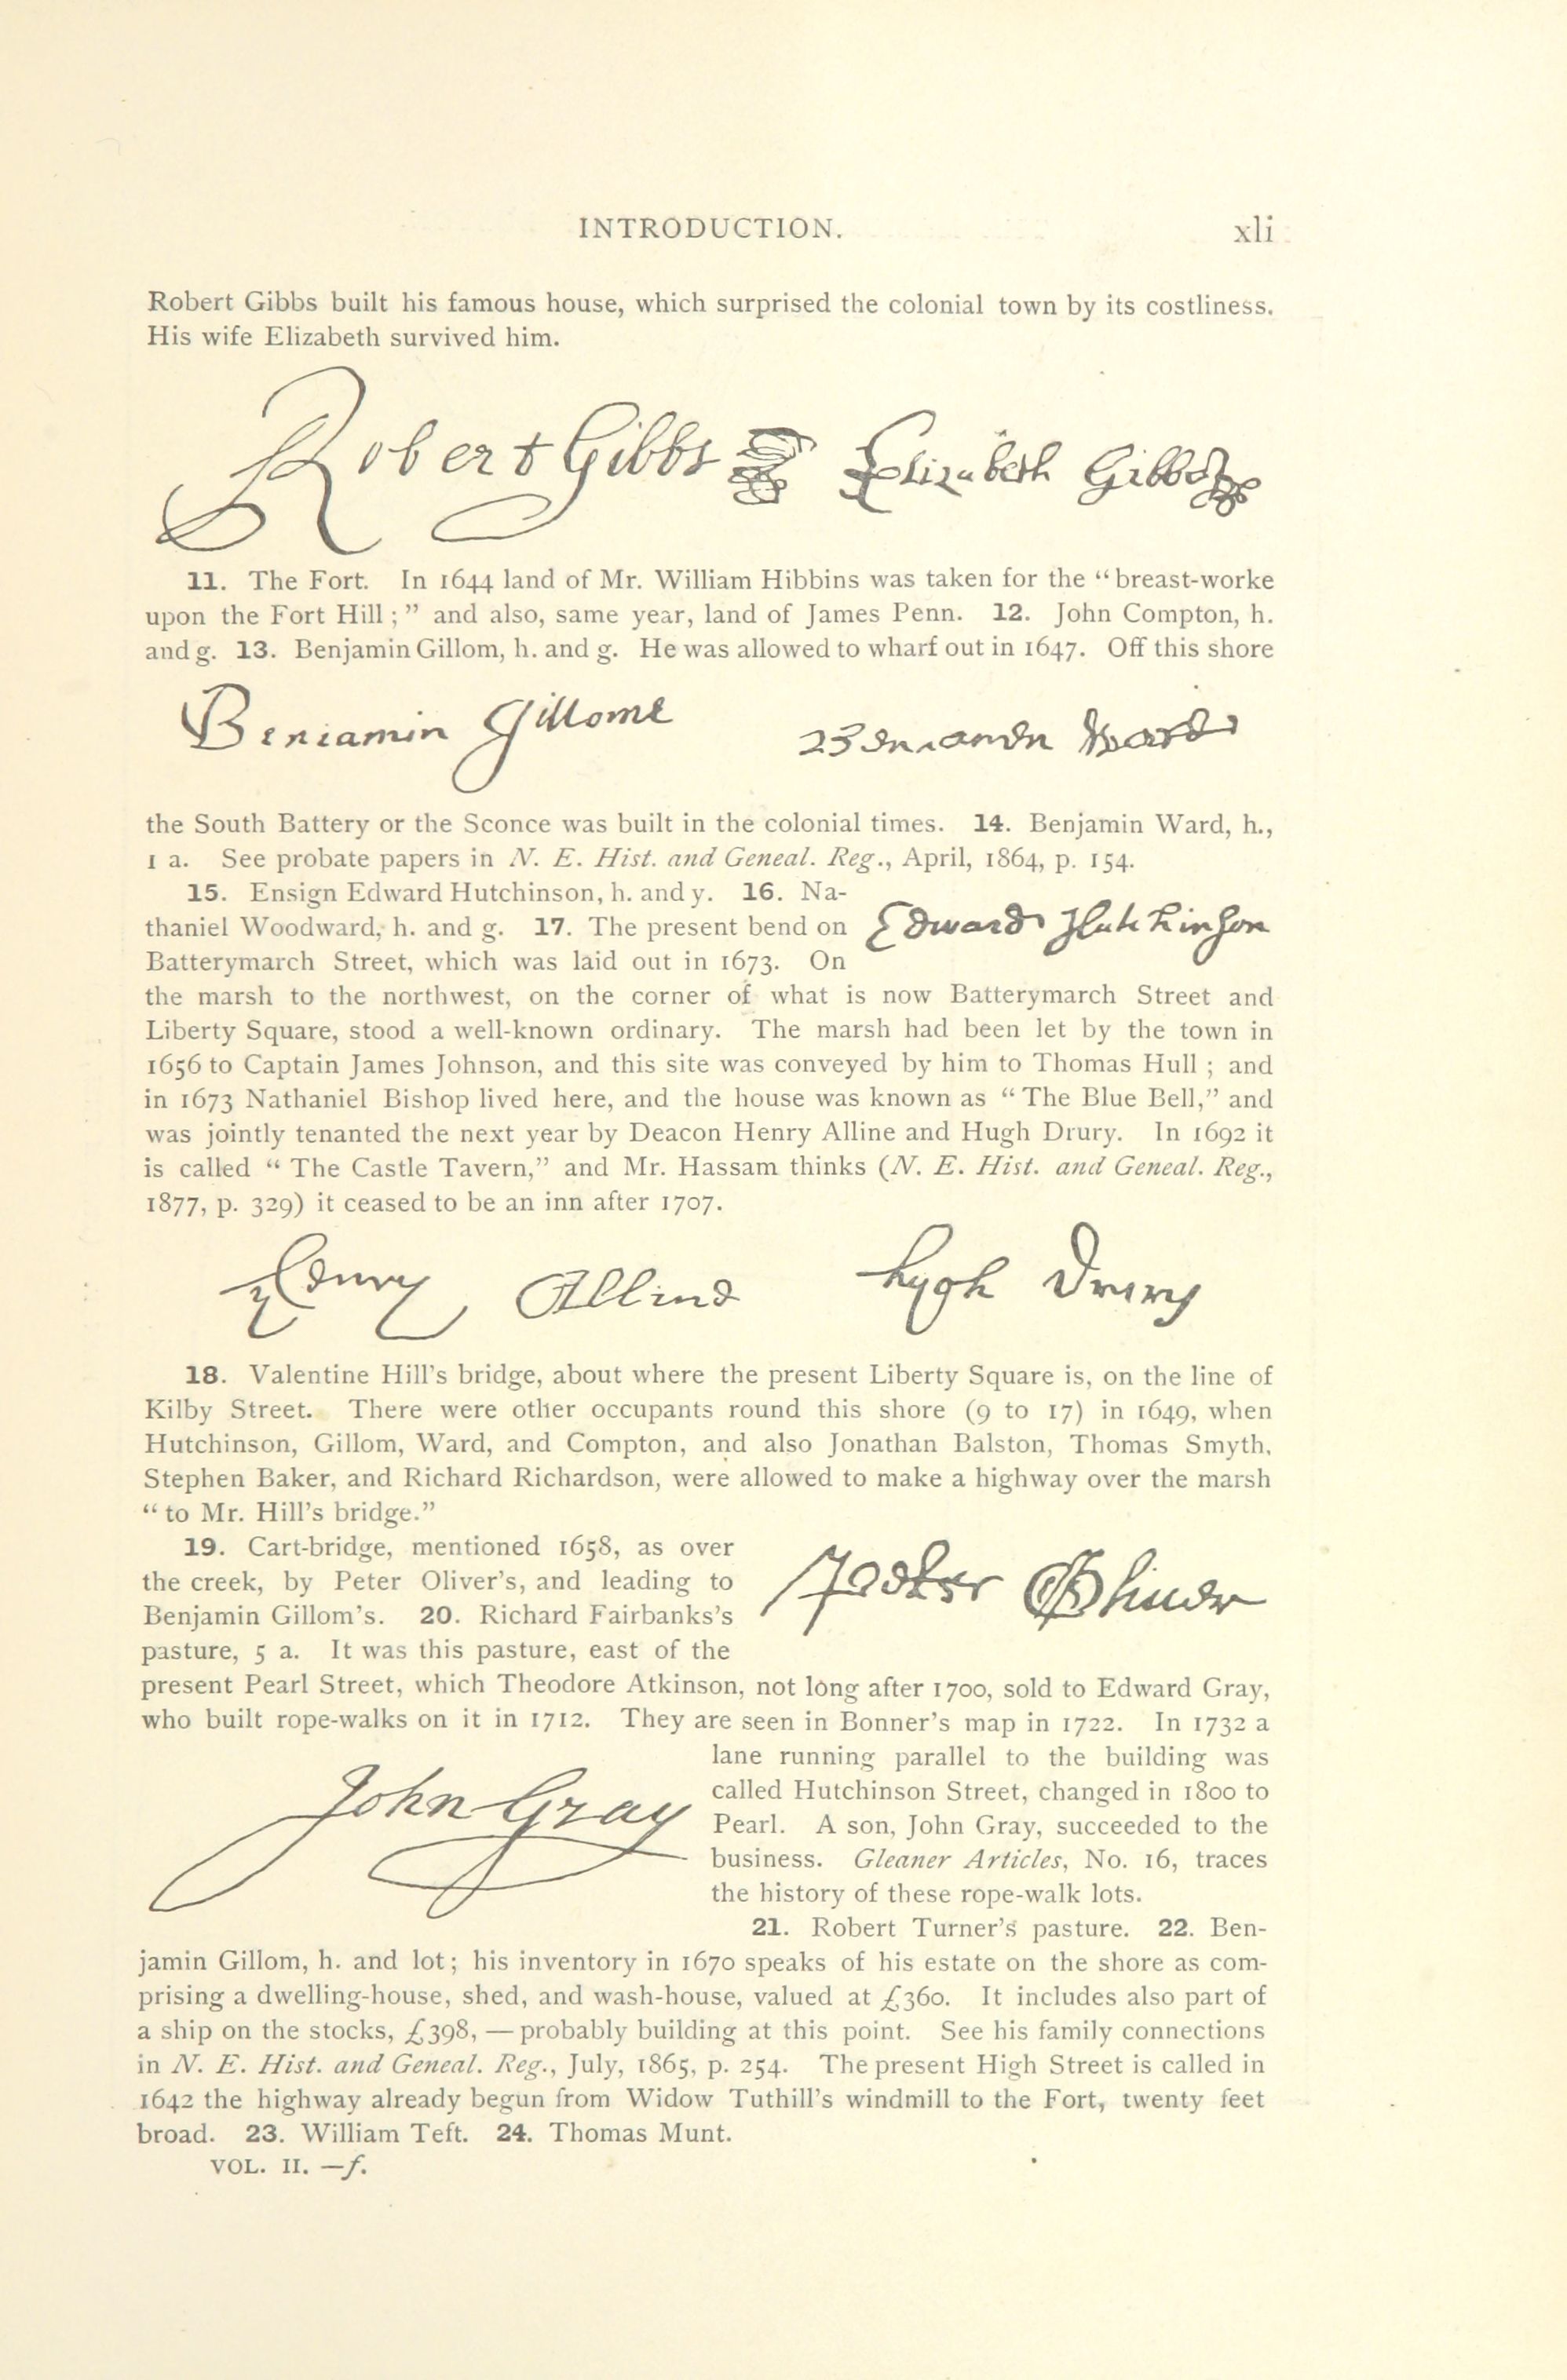 INTRODUCTION. xli
Robert Gibbs built his famous house, which surprised the colonial town by its costliness.
His wife Elizabeth survived him.
Robert Gibbs Elizabeth Gibbs
11. The Fort. In 1644 land of Mr. William Hibbins was taken for the “breast-worke
upon the Fort Hill;” and also, same year, land of James Penn. 12. John Compton, h.
and g. 13. Benjamin Gillom, h. and g. He was allowed to wharf out in 1647. Off this shore
Beniamin Gillome Beniamen Ward
the South Battery or the Sconce was built in the colonial times. 14. Benjamin Ward, h.,
1 a. See probate papers in N. E. Hist. and Geneal. Reg., April, 1864, p. 154.
15. Ensign Edward Hutchinson, h. and y. 16. Na-
thaniel Woodward, h. and g. 17. The present bend on
Batterymarch Street, which was laid out in 1673. On
Edward Hutchinson
the marsh to the northwest, on the corner of what is now Batterymarch Street and
Liberty Square, stood a well-known ordinary. The marsh had been let by the town in
1656 to Captain James Johnson, and this site was conveyed by him to Thomas Hull; and
in 1673 Nathaniel Bishop lived here, and the house was known as “The Blue Bell,” and
was jointly tenanted the next year by Deacon Henry Alline and Hugh Drury. In 1692 it
is called “The Castle Tavern,” and Mr. Hassam thinks (N. E. Hist. and Geneal. Reg.,
1877, p. 329) it ceased to be an inn after 1707.
Henry Alline Hugh Drury
18. Valentine Hill's bridge, about where the present Liberty Square is, on the line of
Kilby Street. There were other occupants round this shore (9 to 17) in 1649, when
Hutchinson, Gillom, Ward, and Compton, and also Jonathan Balston, Thomas Smyth,
Stephen Baker, and Richard Richardson, were allowed to make a highway over the marsh
“to Mr. Hill's bridge.”
19. Cart-bridge, mentioned 1658, as over
the creek, by Peter Oliver's, and leading to
Benjamin Gillom's. 20. Richard Fairbanks's
pasture, 5 a. It was this pasture, east of the
Peeter Oliuer
present Pearl Street, which Theodore Atkinson, not long after 1700, sold to Edward Gray,
who built rope-walks on it in 1712. They are seen in Bonner's map in 1722. In 1732 a
John Gray
lane running parallel to the building was
called Hutchinson Street, changed in 1800 to
Pearl. A son, John Gray, succeeded to the
business. Gleaner Articles, No. 16, traces
the history of these rope-walk lots.
21. Robert Turner's pasture. 22. Ben-
jamin Gillom, h. and lot; his inventory in 1670 speaks of his estate on the shore as com-
prising a dwelling-house, shed, and wash-house, valued at £360. It includes also part of
a ship on the stocks, £398, — probably building at this point. See his family connections
in N. E. Hist. and Geneal. Reg., July, 1865, p. 254. The present High Street is called in
1642 the highway already begun from Widow Tuthill's windmill to the Fort, twenty feet
broad. 23. William Teft. 24. Thomas Munt.
VOL. II. —f.